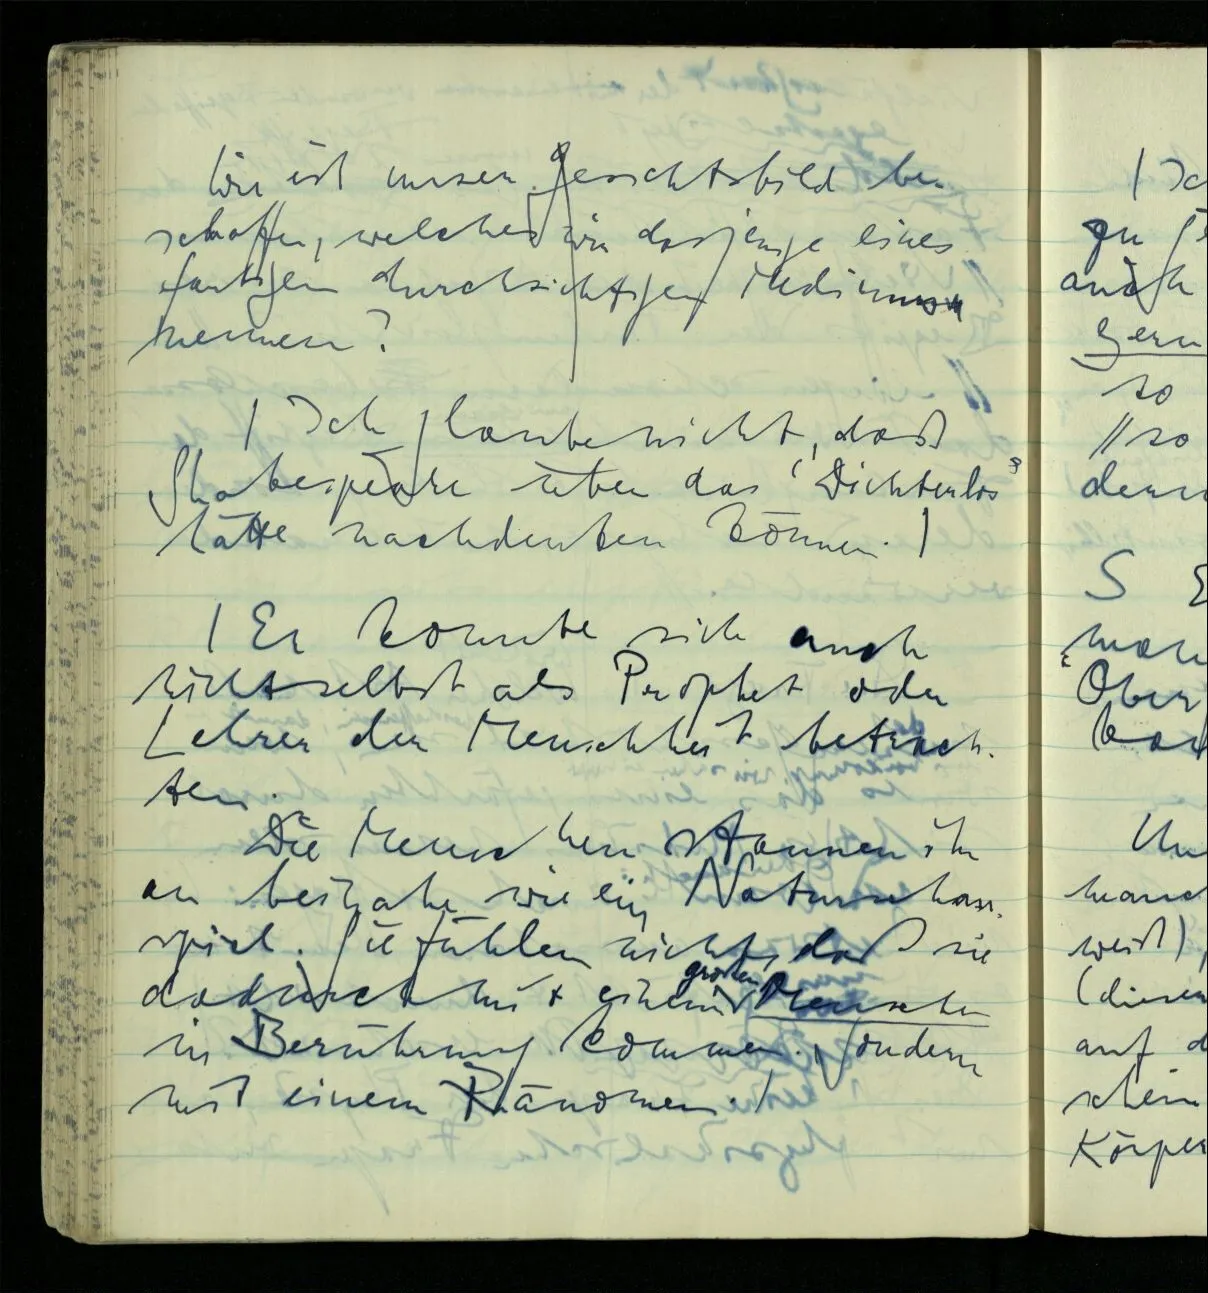 Wie ist unser Gesichtsbild be-
schaffen, welches wir dasjenige eines
farbigen durchsichtigen Mediums
nennen?
| Ich glaube nicht, daß
Shakespeare über das 'Dichterlos'
hätte nachdenken können. |
| Er konnte sich auch
nicht selbst als Prophet oder
Lehrer der Menschheit betrach-
ten.
Die Menschen staunen ihn
an beinahe wie ein Naturschau-
spiel. Sie fühlen nicht, daß sie
dadurch mit einem großen Menschen
in Berührung kommen. Sondern
mit einem Phänomen. |
| Ich
zu
auch
gern
so
// so
denn
S
man
'Ober
kau
manc
weiß),
(diesen
auf d
schein
Körper